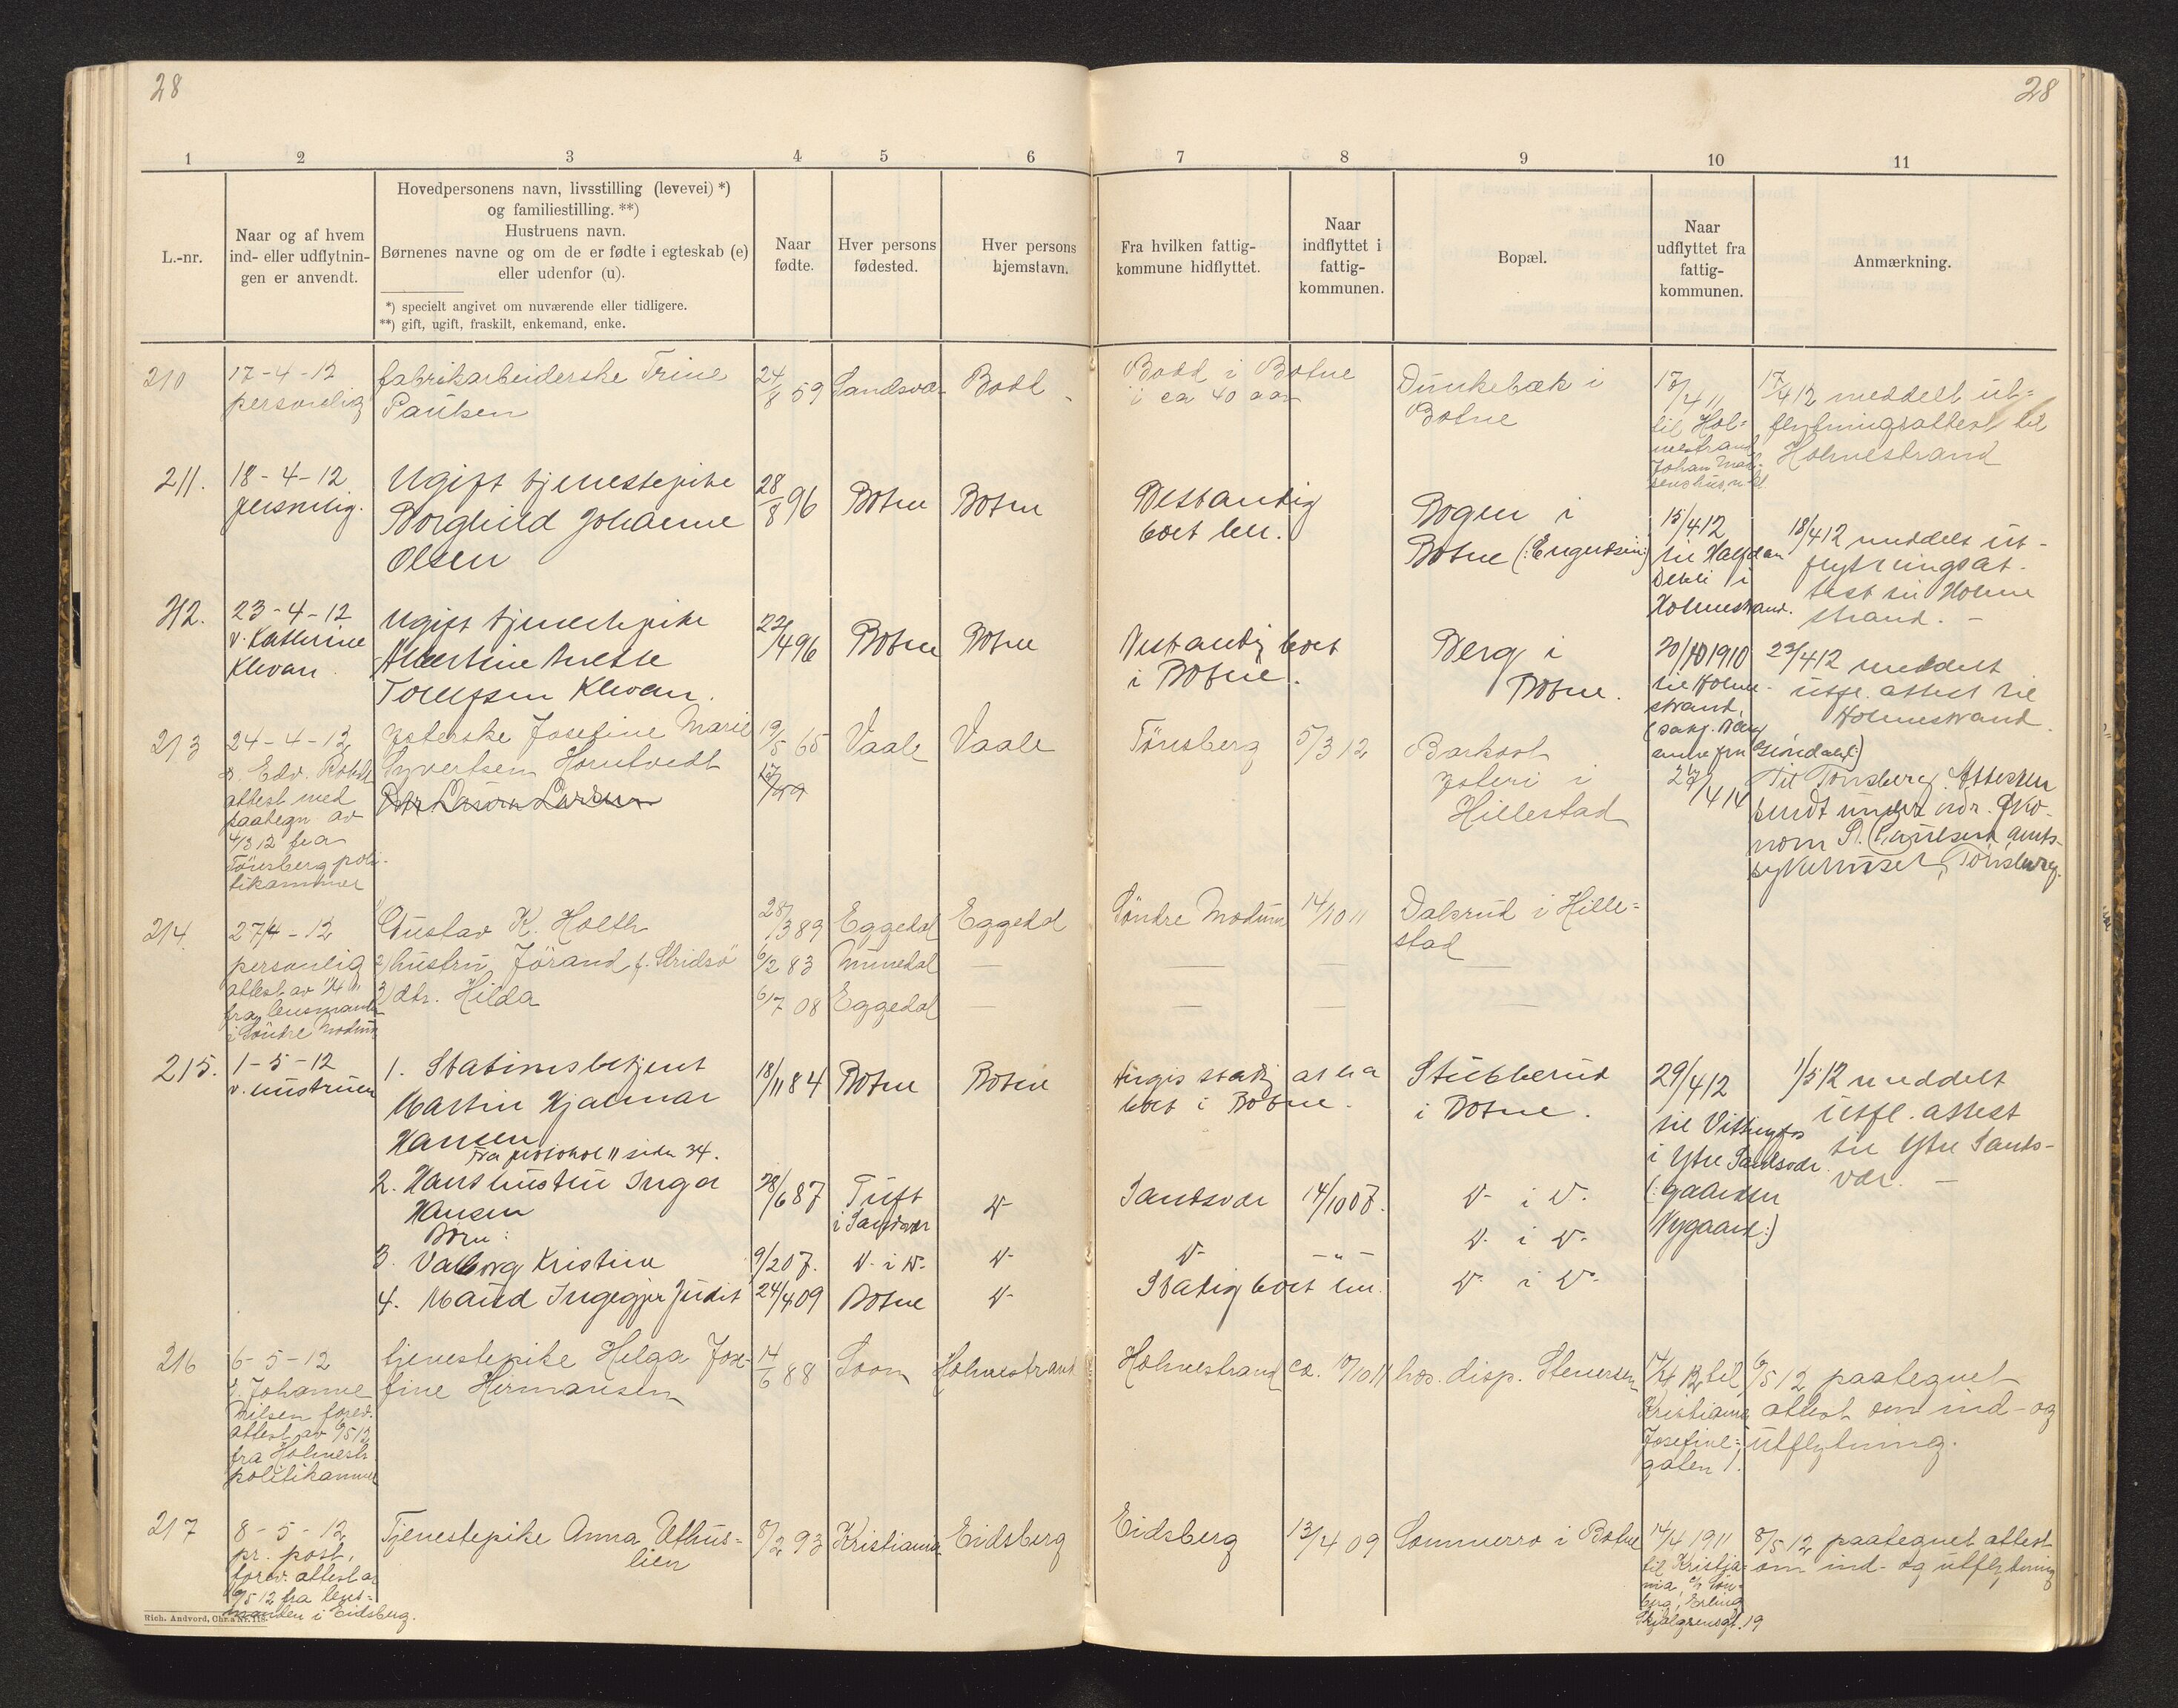 28
28
1 2 3 4 5 6 7 8 9 10 11
L.-nr.
Naar og af hvem
ind- eller udflytnin-
gen er anvendt.
Hovedpersonens navn, livsstilling (levevei) *)
og familiestilling. **)
Hustruens navn.
Børnenes navne og om de er fødte i egteskab (e)
eller udenfor (u).
*) specielt angivet om nuværende eller tidligere.
**) gift, ugift, fraskilt, enkemand, enke.
Naar
fødte.
Hver persons
fødested.
Hver persons
hjemstavn.
Fra hvilken fattig-
kommune hidflyttet.
Naar
indflyttet i
fattig-
kommunen.
Bopæl.
Naar
udflyttet fra
fattig-
kommunen.
Anmærkning.
210
17-4-12
personlig
fabrikarbeiderske Trine
Paulsen
24/8 59
Sandsvær
Bodd
Bodd i Botne
i ca 40 aar
Dunkebæk i
Botne
til Hol=
mestrand
Johan
17/4 12 meddelt ut=
flytningsattest til
Holmestrand
211.
18-4-12
personlig.
Ugift tjenestepike
Borghild Johanne
Olsen
28/8 96
Botne
Botne
Bestandig
boet her.
Bogen i
Botne
15/4 12
til Halfdan
i
Holmestrand.
18/4 12 meddelt ut-
flytningsat-
test til Holme
strand. -
212.
23-4-12
v. Kathrine
Klevan.
Ugift tjenestepike
Albertine Anette
Tollefsen Klevan.
22/4 96
Botne
Botne
Bestandig boet
i Botne.
Berg i
Botne.
20/10 1910
til Holme-
strand.
23/4 12 meddelt
utfl. attest til
Holmestrand.
213
24-4-12
attest med
paategn av
4/3 12 fra
Tönsberg poli-
tikammer
ysterske Josefine Marie
Syvertsen Horntvedt
19/5 65
Vaale
Vaale
Tönsberg
5/3 12
Barkost
ysteri i
Hillestad
Til Tönsberg. Attesten
sendt under adr. Øko-
nom S. Paulsen, amts-
sykehuset, Tönsberg.
214.
27/4-12
personlig
attest av
fra lensmand
i Söndre Modum
1) Gustav K. Holth
2) hustru Jörand f. Skridsö
3) dtr. Hilda
28/3 89
6/2 83
6/7 08
Eggedal
Numedal
Eggedal
Eggedal
—
—
Söndre Modum
—
—
14/10 11
—
—
Dalsrud i Hille=
stad
—
—
215.
1-5-12
v. hustruen
1. Stationsbetjent
Martin Hjalmar
Hansen
Fra protokol II side 34.
2. Hans hustru Inga
Hansen
Børn:
3. Valborg Kristine
4. Maud Ingegjer Judit
18/11 84
28/6 87
9/2 07.
24/4 09
Botne
Tuft
i Sandsvær
D- i D-
Botne
Botne
D-
D-
D-
boet i Botne.
Sandsvær
14/10 07.
D-
— " —
Stadig boet her.
Stubberud
i Botne.
D- i D-
D- i D-
D- i D-
29/4 12
til Vittingfos
i Ytre Sandsvær
(: gaarden
Nygaard:)
1/5 12 meddelt
utfl. attest
til Ytre Sands-
vær. —
216
6-5-12
v. Johanne
Nilsen forev.
attest av 6/5 12
fra Holmestr.
politikammer
tjenestepike Helga Jose-
fine Hermansen
14/6 88
Soon
Holmestrand
Holmestrand
ca.
hos disp. Stenersen
til
Kristiania
Josefine=
gaten
6/5 12 paategnet
attest om ind- og
utflytning.
217
8-5-12
pr. post,
forev. attest av
6/5 12 fra lens-
manden i Eidsberg.
Tjenestepike Anna Uthus=
lien
5/2 93
Kristiania
Eidsberg
Eidsberg
13/4 09
Sommerro i Botne
14/4 1911
til Kristia-
nia,
Erling
Skjalgsønsgt. 19
8/5 12 paategnet attest
om ind- og utflytning
Rich. Andvord, Chr.a Nr. 118.